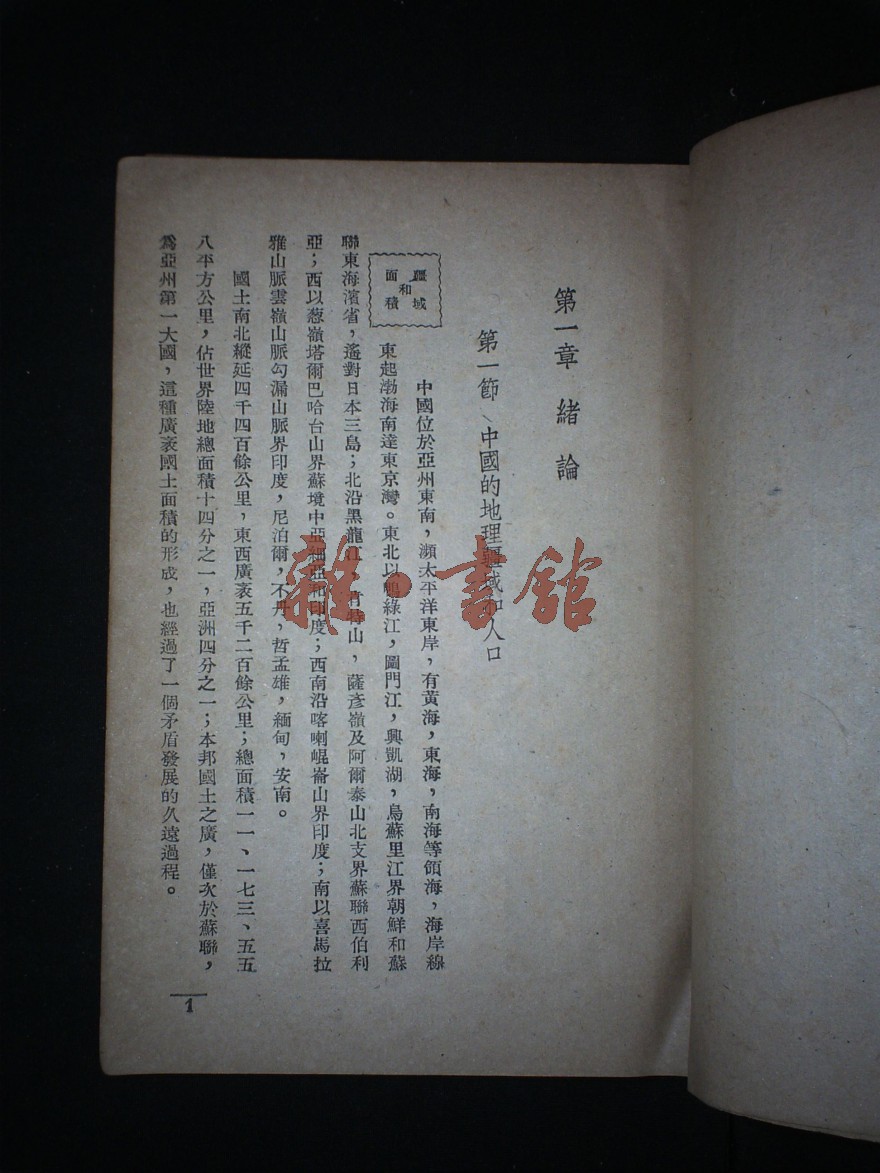 第一章 緒論
第一節 中國的地理疆域和人口
疆域
和
面積
中國位於亞州東南，瀕太平洋東岸，有黃海，東海，南海等領海，海岸線
東起渤海南達東京灣。東北以鴨綠江，圖門江，興凱湖，烏蘇里江界朝鮮和蘇
聯東海濱省，遙對日本三島；北沿黑龍江 肯特山，薩彥嶺及阿爾泰山北支界蘇聯西伯利
亞；西以葱嶺塔爾巴哈台山界蘇境中亞細亞和印度；西南沿喀喇崐崙山界印度；南以喜馬拉
雅山脈雲嶺山脈勾漏山脈界印度，尼泊爾，不丹，哲孟雄，緬甸，安南。
國土南北縱延四千四百餘公里，東西廣袤五千二百餘公里；總面積一一、一七三、五五
八平方公里，佔世界陸地總面積十四分之一，亞洲四分之一；本邦國土之廣，僅次於蘇聯，
爲亞州第一大國，這種廣袤國土面積的形成，也經過了一個矛盾發展的久遠過程。
1
雜·書館